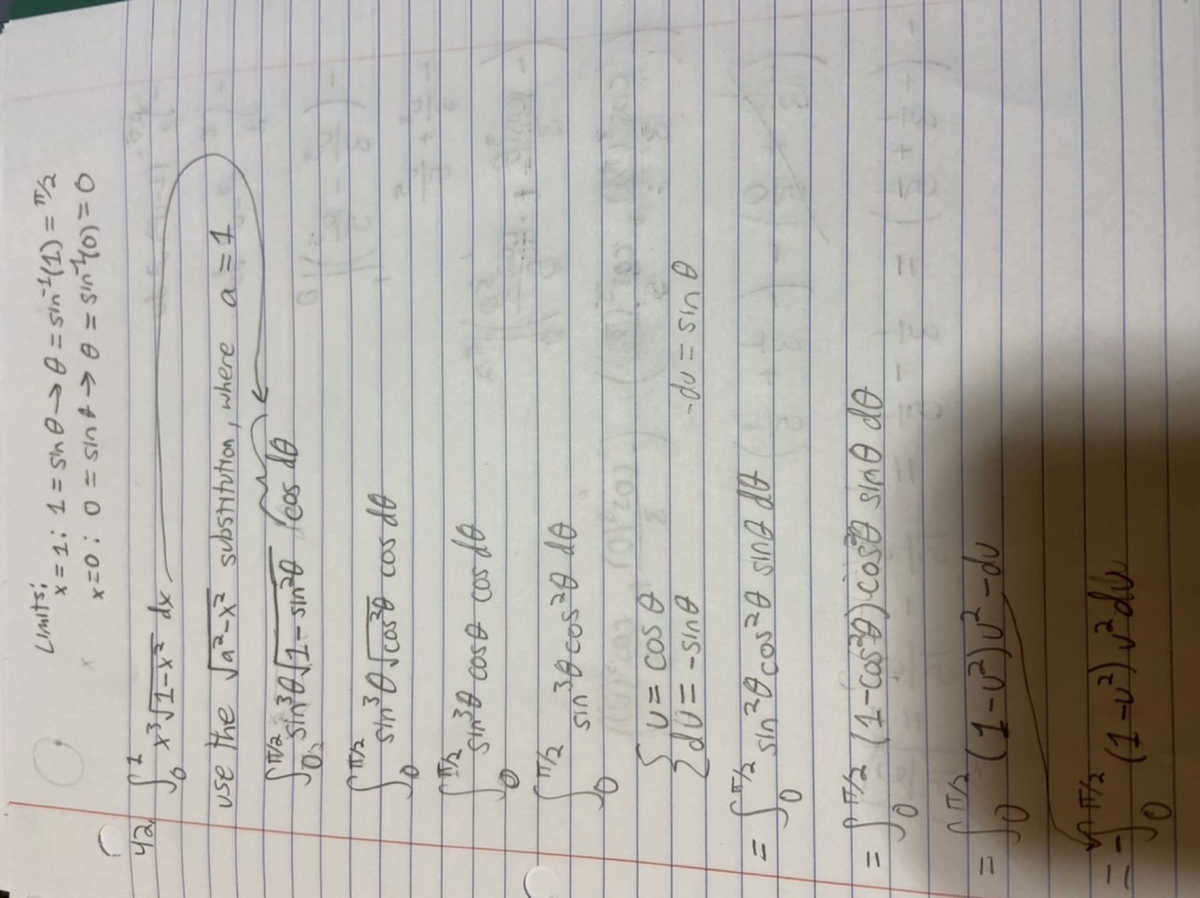 Limits:
x=1: 1 = sinθ → θ = sin⁻¹(1) = π/2
x=0: 0 = sinθ → θ = sin⁻¹(0) = 0
42. ∫₀¹ x³√(1-x²) dx
use the √(a²-x²) substitution, where a = 1
∫₀^(π/2) sin³θ√(1-sin²θ) cos dθ
∫₀^(π/2) sin³θ√(cos²θ) cos dθ
∫₀^(π/2) sin³θ cosθ cos dθ
∫₀^(π/2) sin³θ cos²θ dθ
{ u = cosθ
du = -sinθ -du = sinθ
= ∫₀^(π/2) sin²θ cos²θ sinθ dθ
= ∫₀^(π/2) (1-cos²θ)cos²θ sinθ dθ
= ∫₀^(π/2) (1-u²)u² -du
= -∫₀^(π/2) (1-u²)u² du